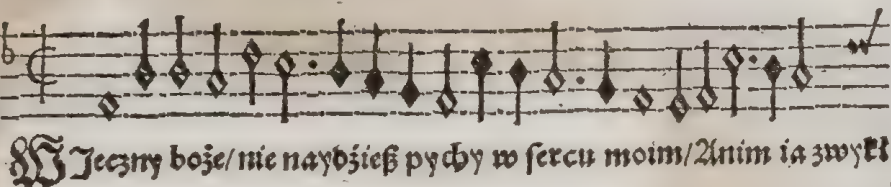 WJeczny boże/ nie naydźieß pychy w sercu moim/ Anim ia zwykł